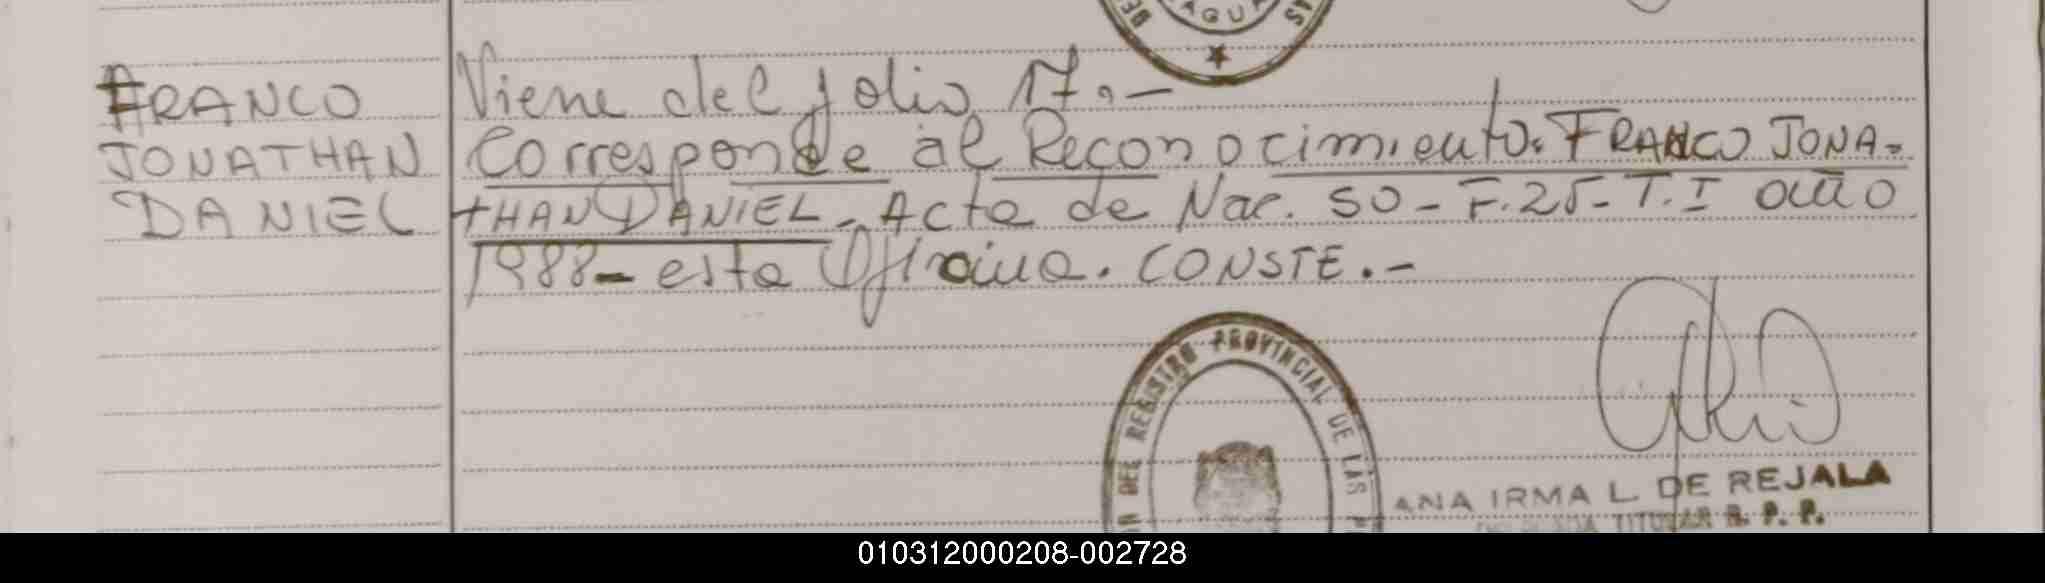 AGUA
FRANCO
JONATHAN
DANIEL
Viene del folio 17.-
Corresponde al Reconocimiento. FRANCO JONA-
tHAN DANIEL - Acta de Nac. 50 - F. 25 - T. I año
1988 - esta Oficina. CONSTE.-
DEL REGISTRO PROVINCIAL DE LAS P
ANA IRMA L. DE REJALA
TITULAR R. P. P.
010312000208-002728